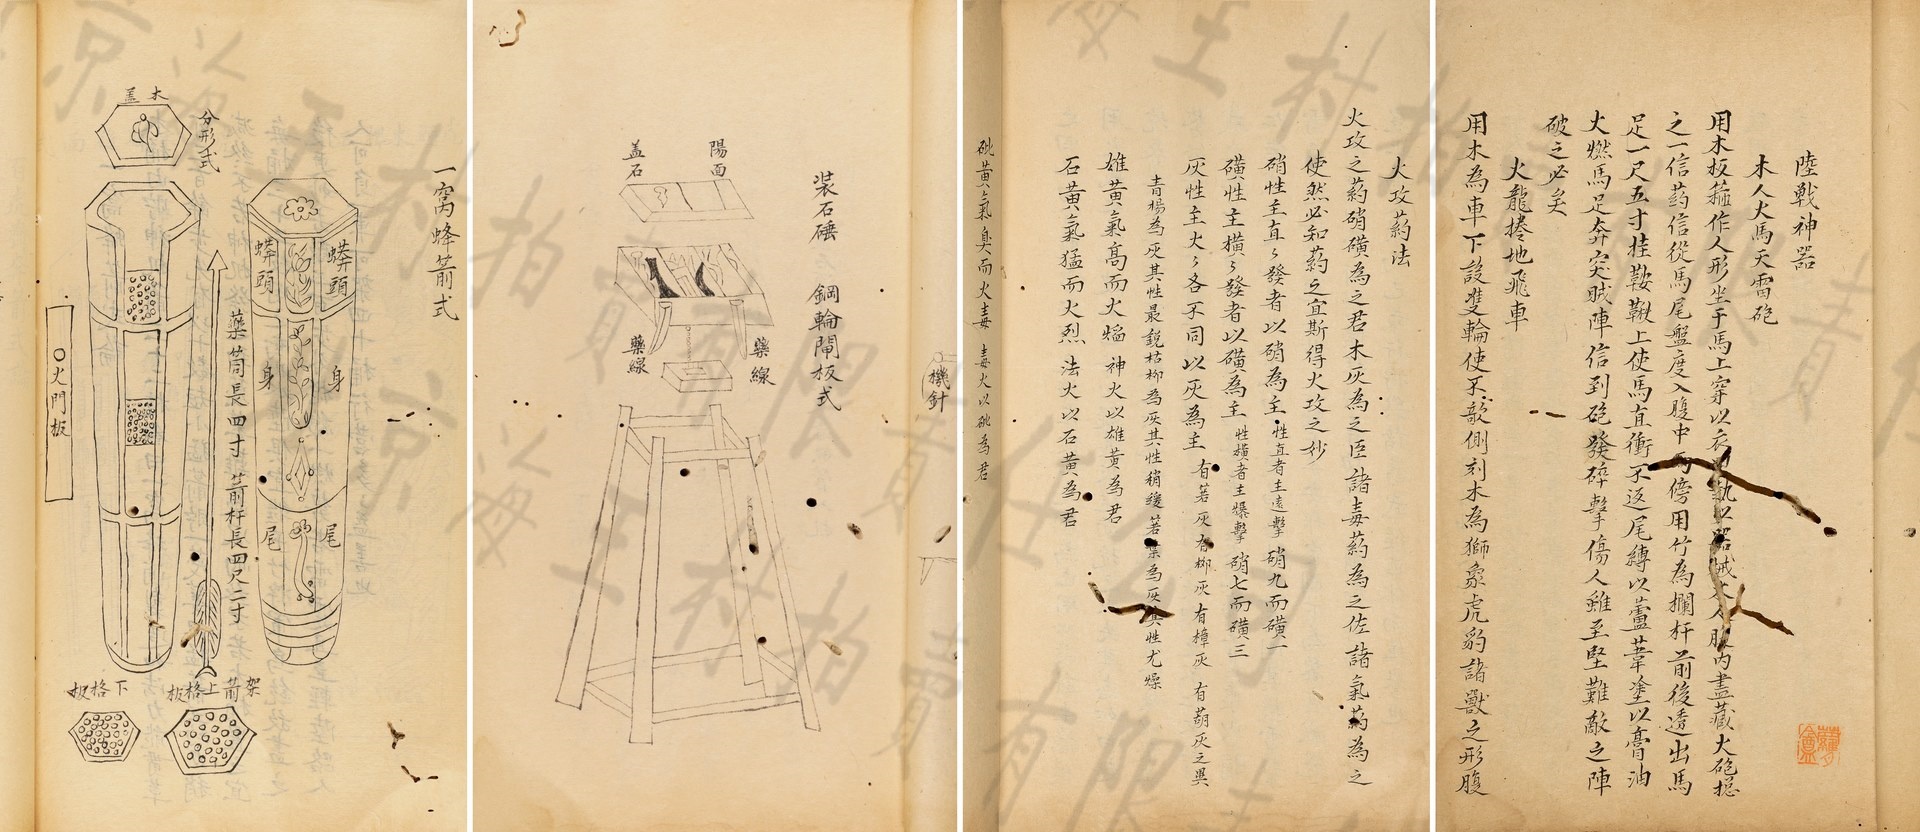 一窩蜂箭式
木
蓋
分形式
蟒頭
蟒頭
身
身
尾
尾
藥筒長四寸 箭杆長四尺二寸
火門板
下格板
架箭上格板
裝石硾
鋼輪閘板式
陽面
蓋石
藥線
藥線
機針
火攻葯法
火攻之葯硝磺為之君木灰為之臣諸毒葯為之佐諸氣葯為之
使然必知葯之宜斯得火攻之妙
硝性主直々發者以硝為主 性直者主遠擊 硝九而磺一
磺性主橫々發者以磺為主 性橫者主爆擊 硝七而磺三
灰性主火々各不同以灰為主 有箬灰有柳灰有樟灰有葫灰之異
青楊為灰其性最銳枯柳為灰其性稍緩箬葉為灰其性尤燥
雄黃氣高而火焰 神火以雄黃為君
石黃氣猛而火烈 法火以石黃為君
砒黃氣臭而火毒 毒火以砒為君
陸戰神器
木人火馬天雷砲
用木板箍作人形坐于馬上穿以衣 執以器械木人腹內盡藏大砲總
之一信葯信從馬尾盤度入腹中 傍用竹為攔杆前後透出馬
足一尺五寸挂鞍鞦上使馬直衝不返尾縛以蘆葦塗以膏油
火燃馬足奔突賊陣信到砲發碎擊傷人雖至堅難敵之陣
破之必矣
火龍捲地飛車
用木為車下設雙輪使不欹側刻木為獅象虎豹諸獸之形腹